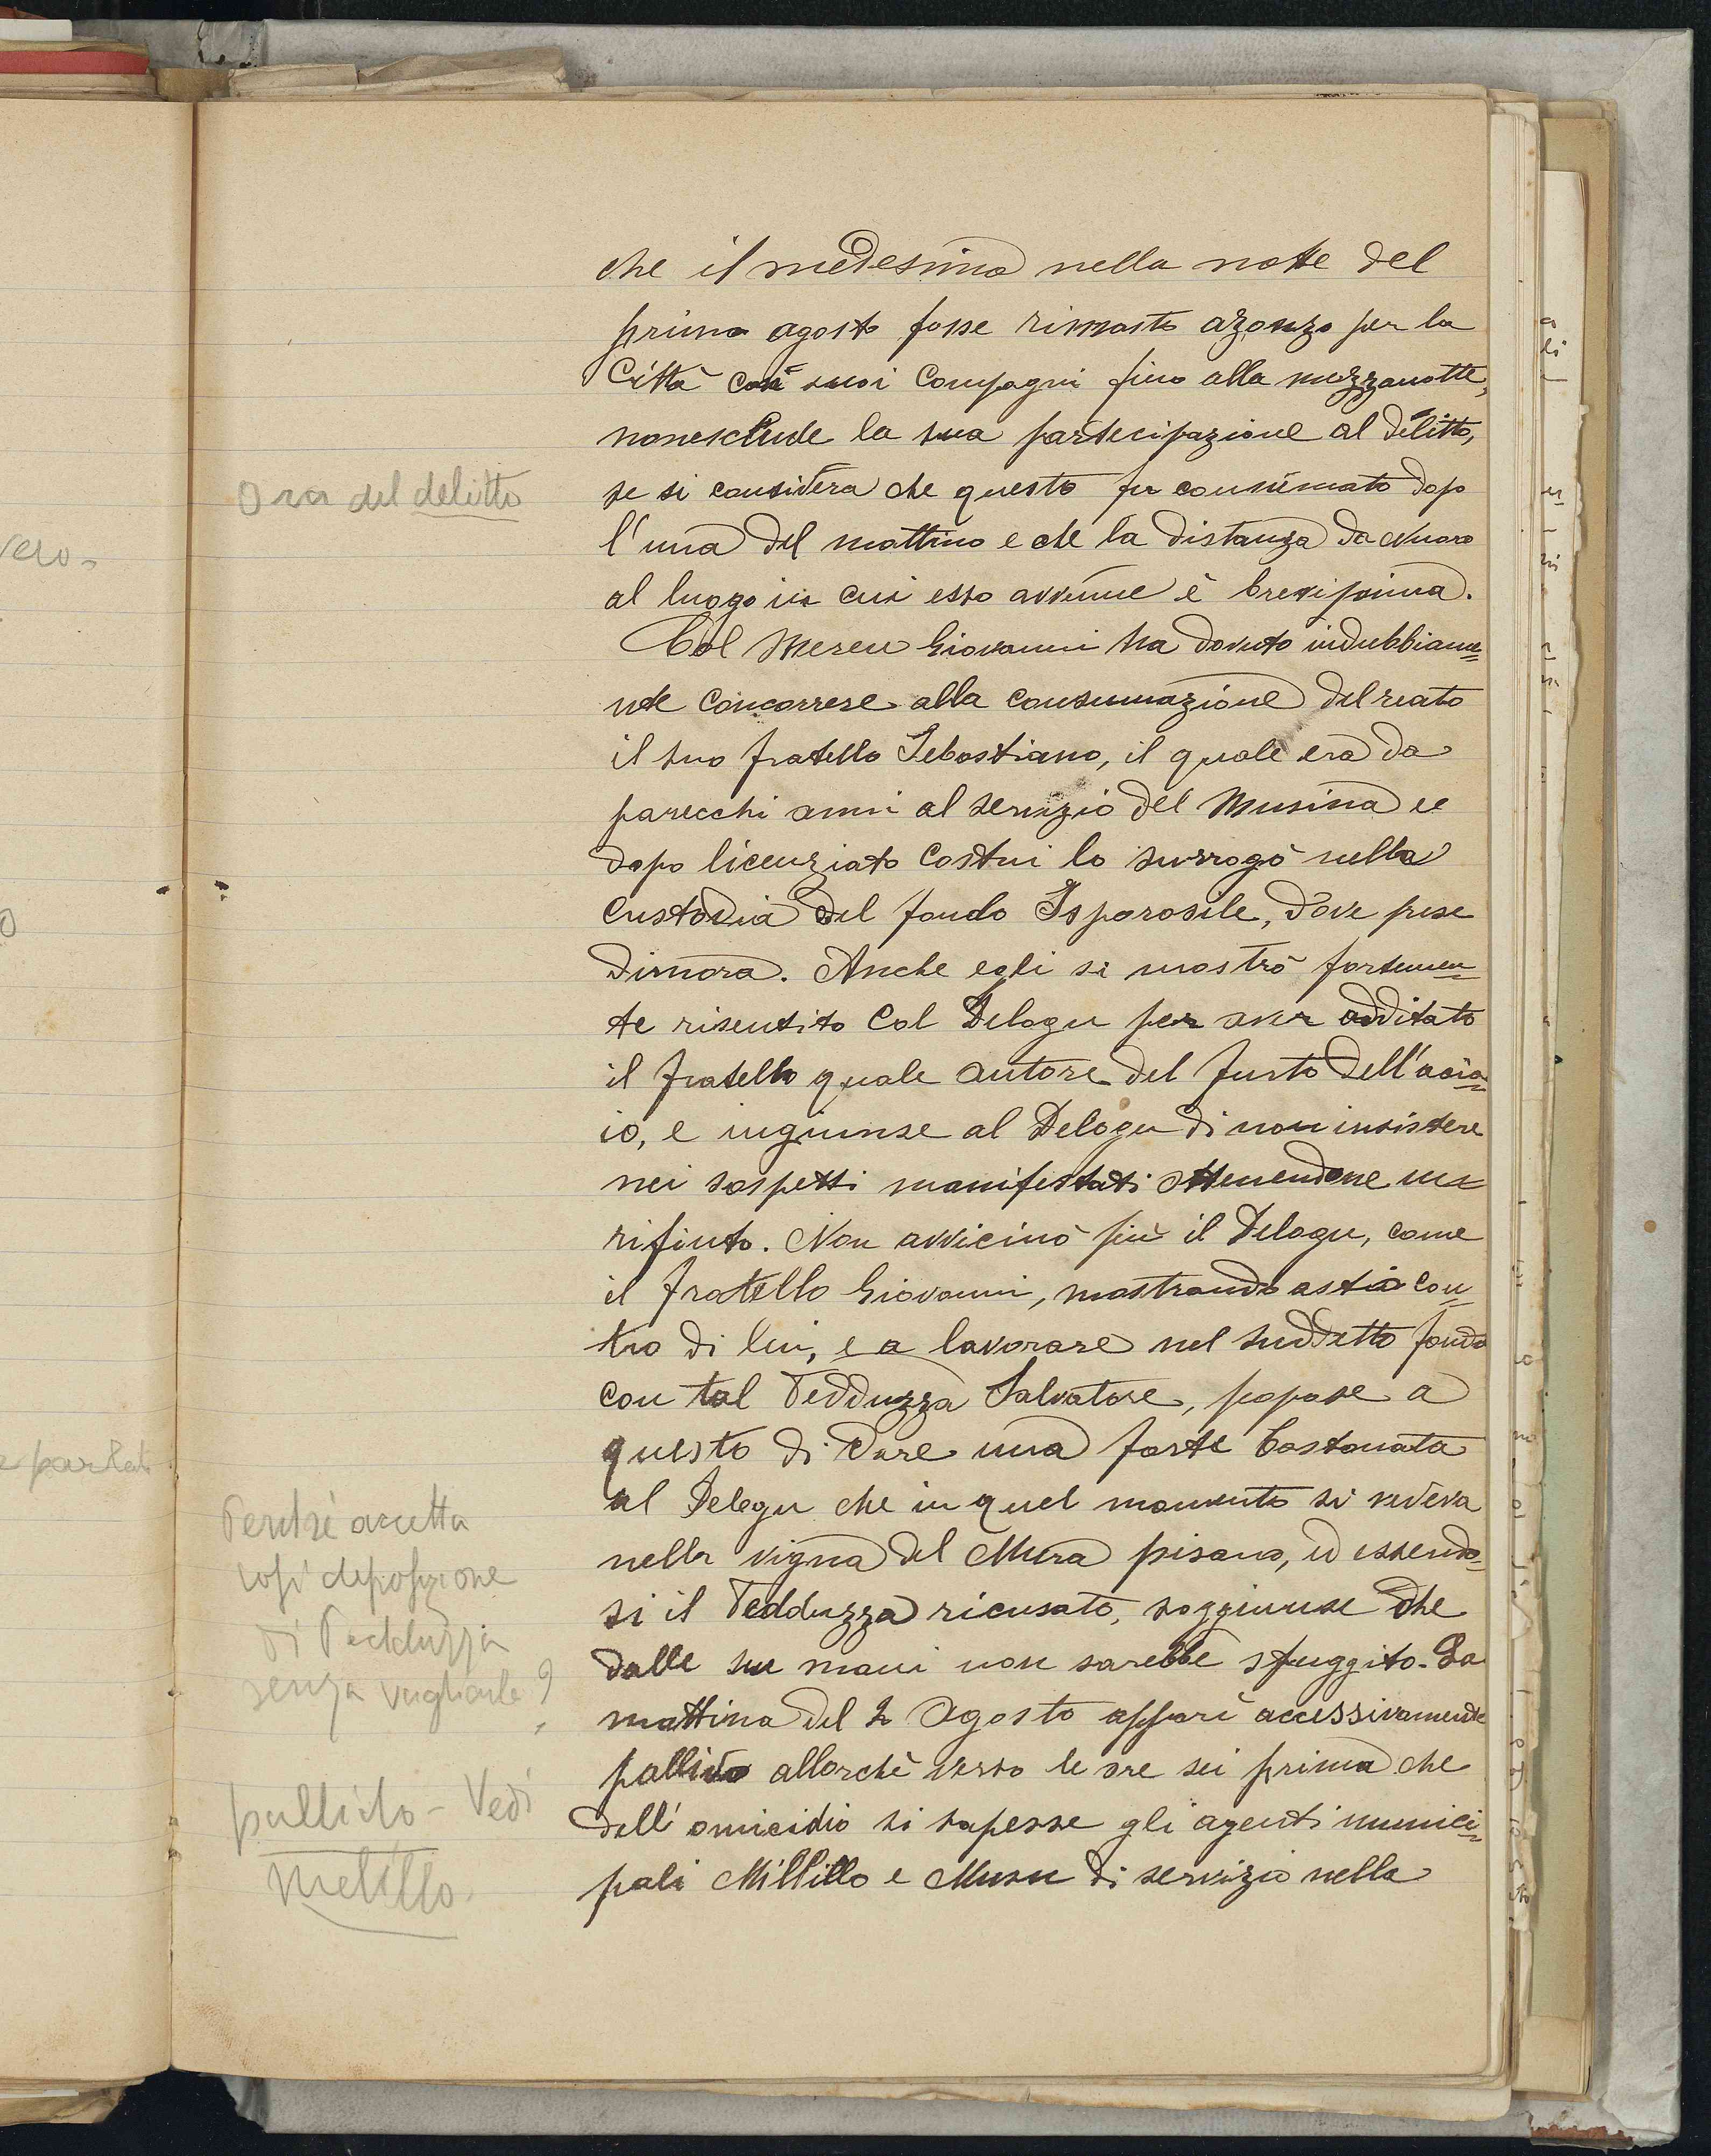 che il medesimo nella notte del
primo agosto fosse rimasto azonzo per la
Città coi suoi compagni fino alla mezzanotte,
nonesclude la sua partecipazione al delitto,
Ora del delitto
se si considera che questo fu consumato dopo
l'una del mattino e che la distanza da Nuoro
al luogo in cui esso avvenne è brevissima.
Col Mereu Giovanni ha dovuto indubbiame=
nte concorrere alla consumazione del reato
il suo fratello Sebastiano, il quale era da
parecchi anni al servizio del Musina e
dopo licenziato costui lo surrogò nella
custodia del fondo Isporosile, dove prese
dimora. Anche egli si mostrò fortemen=
te risentito col Delogu per aver additato
il fratello quale autore del furto dell'accia=
io, e ingiunse al Delogu di non insistere
nei sospetti manifestati ottenendone un
rifiuto. Non avvicinò più il Delogu, come
il fratello Giovanni, mostrando astio con=
tro di lui, e a lavorare nel suddetto fondo
con tal Tedduzza Salvatore, propose a
questo di dare una forte bastonata
al Delogu che in quel momento si vedeva
nella vigna del Mura pisano, ed essendo=
si il Tedduzza ricusato, soggiunse che
dalle sue mani non sarebbe sfuggito. La
mattina del 2 Agosto apparì eccessivamente
pallido allorchè verso le ore sei prima che
dell'omicidio si sapesse gli agenti munici=
pali Millillo e Musu di servizio nella
Perchè accetta
così deposizione
di Tedduzza
senza vagliarle?
pallido - Vedi
Melillo.
vero-